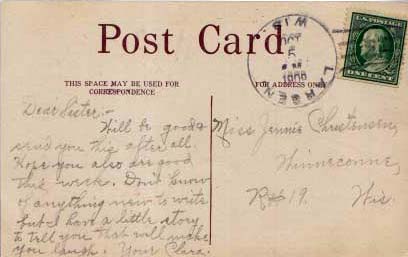 Post Card
THIS SPACE MAY BE USED FOR
CORRESPONDENCE
FOR ADDRESS ONLY.
LARSEN WIS
OCT
5
1909
U.S. POSTAGE
ONE CENT
Dear Sister:-
Will be good &
send you this after all.
Hope you also are good
this week. Don't know
of anything new to write
but I have a little story
to tell you that will make
you laugh. Your Clara.
Miss Jennie Christensen,
Winneconne,
R#19. Wis.